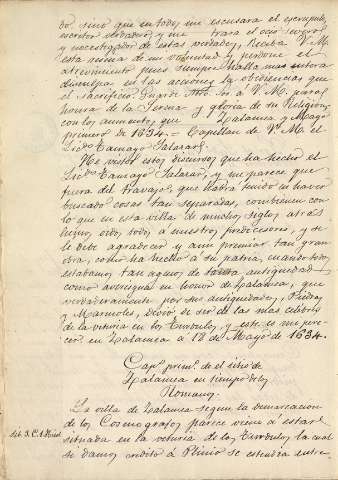 do, sino que en todo me escusara el exemplo,
escritor verdadero, y me trara el ocio severo
y investigador de estas verdades, Reciba V. M.
esta suma de mi voluntad y perdone el
atrevimiento pues siempre halla mas entera
disculpa en las acciones la obediencia que
el sacrificio. Guarde Ntro. Sor á V. M. para
honra de la Serena y gloria de su Religion,
con los aumentos que Zalamea y Mayo
primero de 1634. = Capellan de V. M. el
Licdo. Tamayo Salazar.
He visto estos discursos que ha hecho el
Licdo. Tamayo Salazar, y me parece que
fuera del travajo, que habrá tenido en haver
buscado cosas tan separadas, convienen con
lo que en esta villa de muchos siglos atras
hemos oido todos a nuestros predecesores, y se
le debe agradecer y aun premiar tan gran
obra, como ha hecho á su patria, cuando todos
estabamos tan agenos de tanta antiguedad
como averigua en honor de Zalamea, que
verdaderamente por sus antiguedades, Piedras
y Marmoles, devió de ser de las mas celebres
de la veturia en los Turdulos, y este es mi pare-
cer. en Zalamea á 18 de Mayo de 1634.
Capo. primo. de el sitio de
Zalamea en tiempo de los
Romanos.
La villa de Zalamea segun la demarcacion
de los Cosmografos parece viene á estar
Lib. 3. C. 1 Hist. situada en la veturia de los Turdulos la cual
se damos credito á Plinio se estendia entre